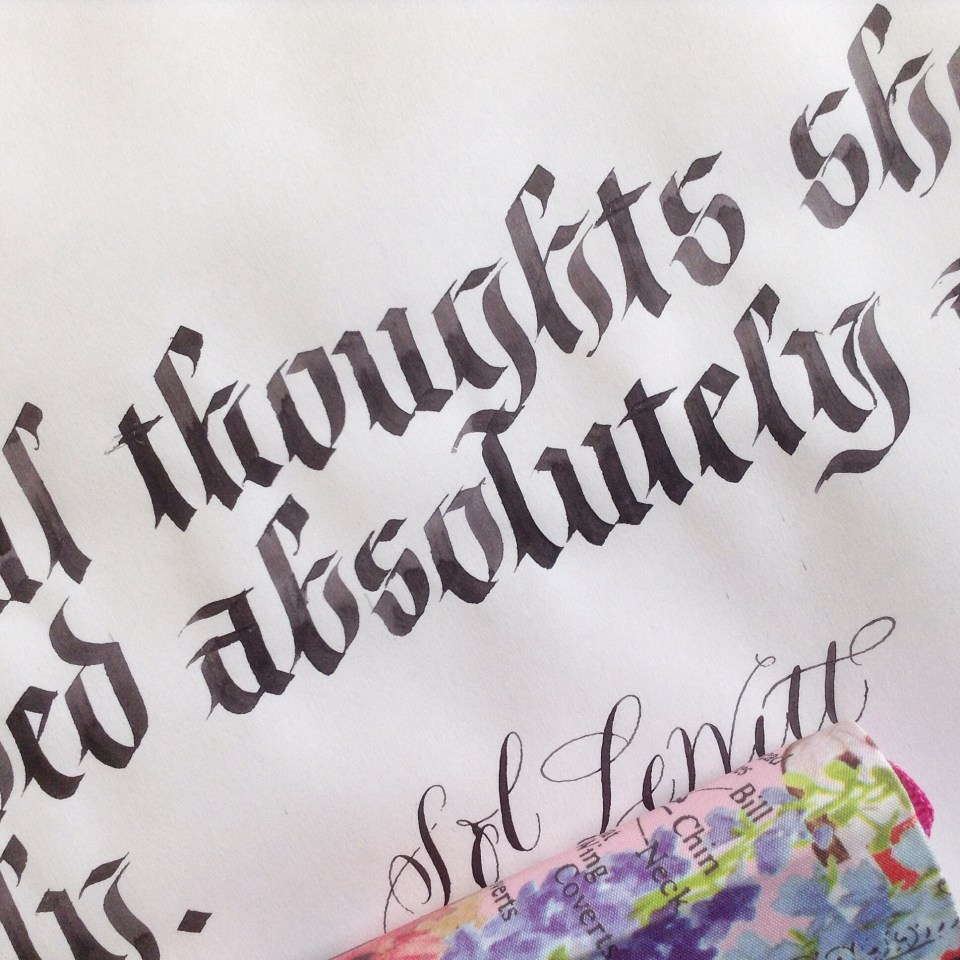 ll thoughts sh
ed absolutely
ly.
Sol LeWitt
Bill
Chin
Neck
Wing
Coverts
verts